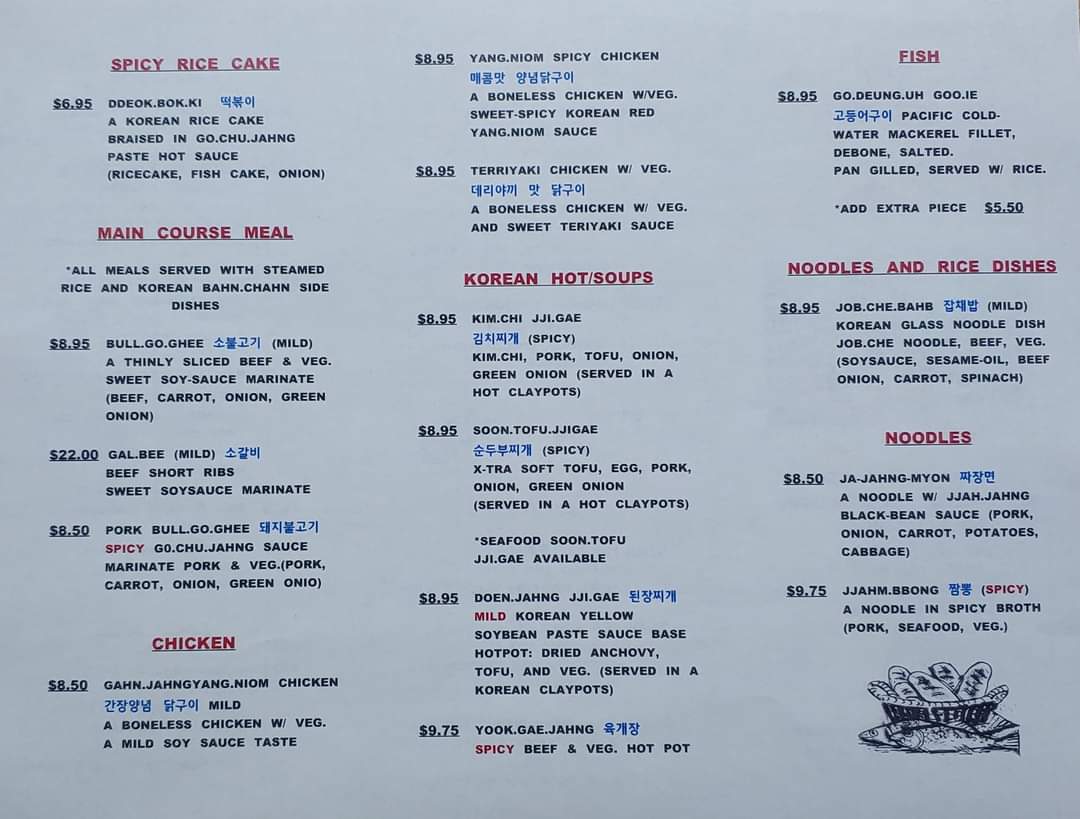 SPICY RICE CAKE
$6.95 DDEOK.BOK.KI 떡볶이
A KOREAN RICE CAKE
BRAISED IN GO.CHU.JAHNG
PASTE HOT SAUCE
(RICECAKE, FISH CAKE, ONION)
MAIN COURSE MEAL
*ALL MEALS SERVED WITH STEAMED
RICE AND KOREAN BAHN.CHAHN SIDE
DISHES
$8.95 BULL.GO.GHEE 소불고기 (MILD)
A THINLY SLICED BEEF & VEG.
SWEET SOY-SAUCE MARINATE
(BEEF, CARROT, ONION, GREEN
ONION)
$22.00 GAL.BEE (MILD) 소갈비
BEEF SHORT RIBS
SWEET SOYSAUCE MARINATE
$8.50 PORK BULL.GO.GHEE 돼지불고기
SPICY GO.CHU.JAHNG SAUCE
MARINATE PORK & VEG.(PORK,
CARROT, ONION, GREEN ONIO)
CHICKEN
$8.50 GAHN.JAHNGYANG.NIOM CHICKEN
간장양념 닭구이 MILD
A BONELESS CHICKEN W/ VEG.
A MILD SOY SAUCE TASTE
$8.95 YANG.NIOM SPICY CHICKEN
매콤맛 양념닭구이
A BONELESS CHICKEN W/VEG.
SWEET-SPICY KOREAN RED
YANG.NIOM SAUCE
$8.95 TERRIYAKI CHICKEN W/ VEG.
데리야끼 맛 닭구이
A BONELESS CHICKEN W/ VEG.
AND SWEET TERIYAKI SAUCE
KOREAN HOT/SOUPS
$8.95 KIM.CHI JJI.GAE
김치찌개 (SPICY)
KIM.CHI, PORK, TOFU, ONION,
GREEN ONION (SERVED IN A
HOT CLAYPOTS)
$8.95 SOON.TOFU.JJIGAE
순두부찌개 (SPICY)
X-TRA SOFT TOFU, EGG, PORK,
ONION, GREEN ONION
(SERVED IN A HOT CLAYPOTS)
*SEAFOOD SOON.TOFU
JJI.GAE AVAILABLE
$8.95 DOEN.JAHNG JJI.GAE 된장찌개
MILD KOREAN YELLOW
SOYBEAN PASTE SAUCE BASE
HOTPOT: DRIED ANCHOVY,
TOFU, AND VEG. (SERVED IN A
KOREAN CLAYPOTS)
$9.75 YOOK.GAE.JAHNG 육개장
SPICY BEEF & VEG. HOT POT
FISH
$8.95 GO.DEUNG.UH GOO.IE
고등어구이 PACIFIC COLD-
WATER MACKEREL FILLET,
DEBONE, SALTED.
PAN GILLED, SERVED W/ RICE.
*ADD EXTRA PIECE $5.50
NOODLES AND RICE DISHES
$8.95 JOB.CHE.BAHB 잡채밥 (MILD)
KOREAN GLASS NOODLE DISH
JOB.CHE NOODLE, BEEF, VEG.
(SOYSAUCE, SESAME-OIL, BEEF
ONION, CARROT, SPINACH)
NOODLES
$8.50 JA-JAHNG-MYON 짜장면
A NOODLE W/ JJAH.JAHNG
BLACK-BEAN SAUCE (PORK,
ONION, CARROT, POTATOES,
CABBAGE)
$9.75 JJAHM.BBONG 짬뽕 (SPICY)
A NOODLE IN SPICY BROTH
(PORK, SEAFOOD, VEG.)